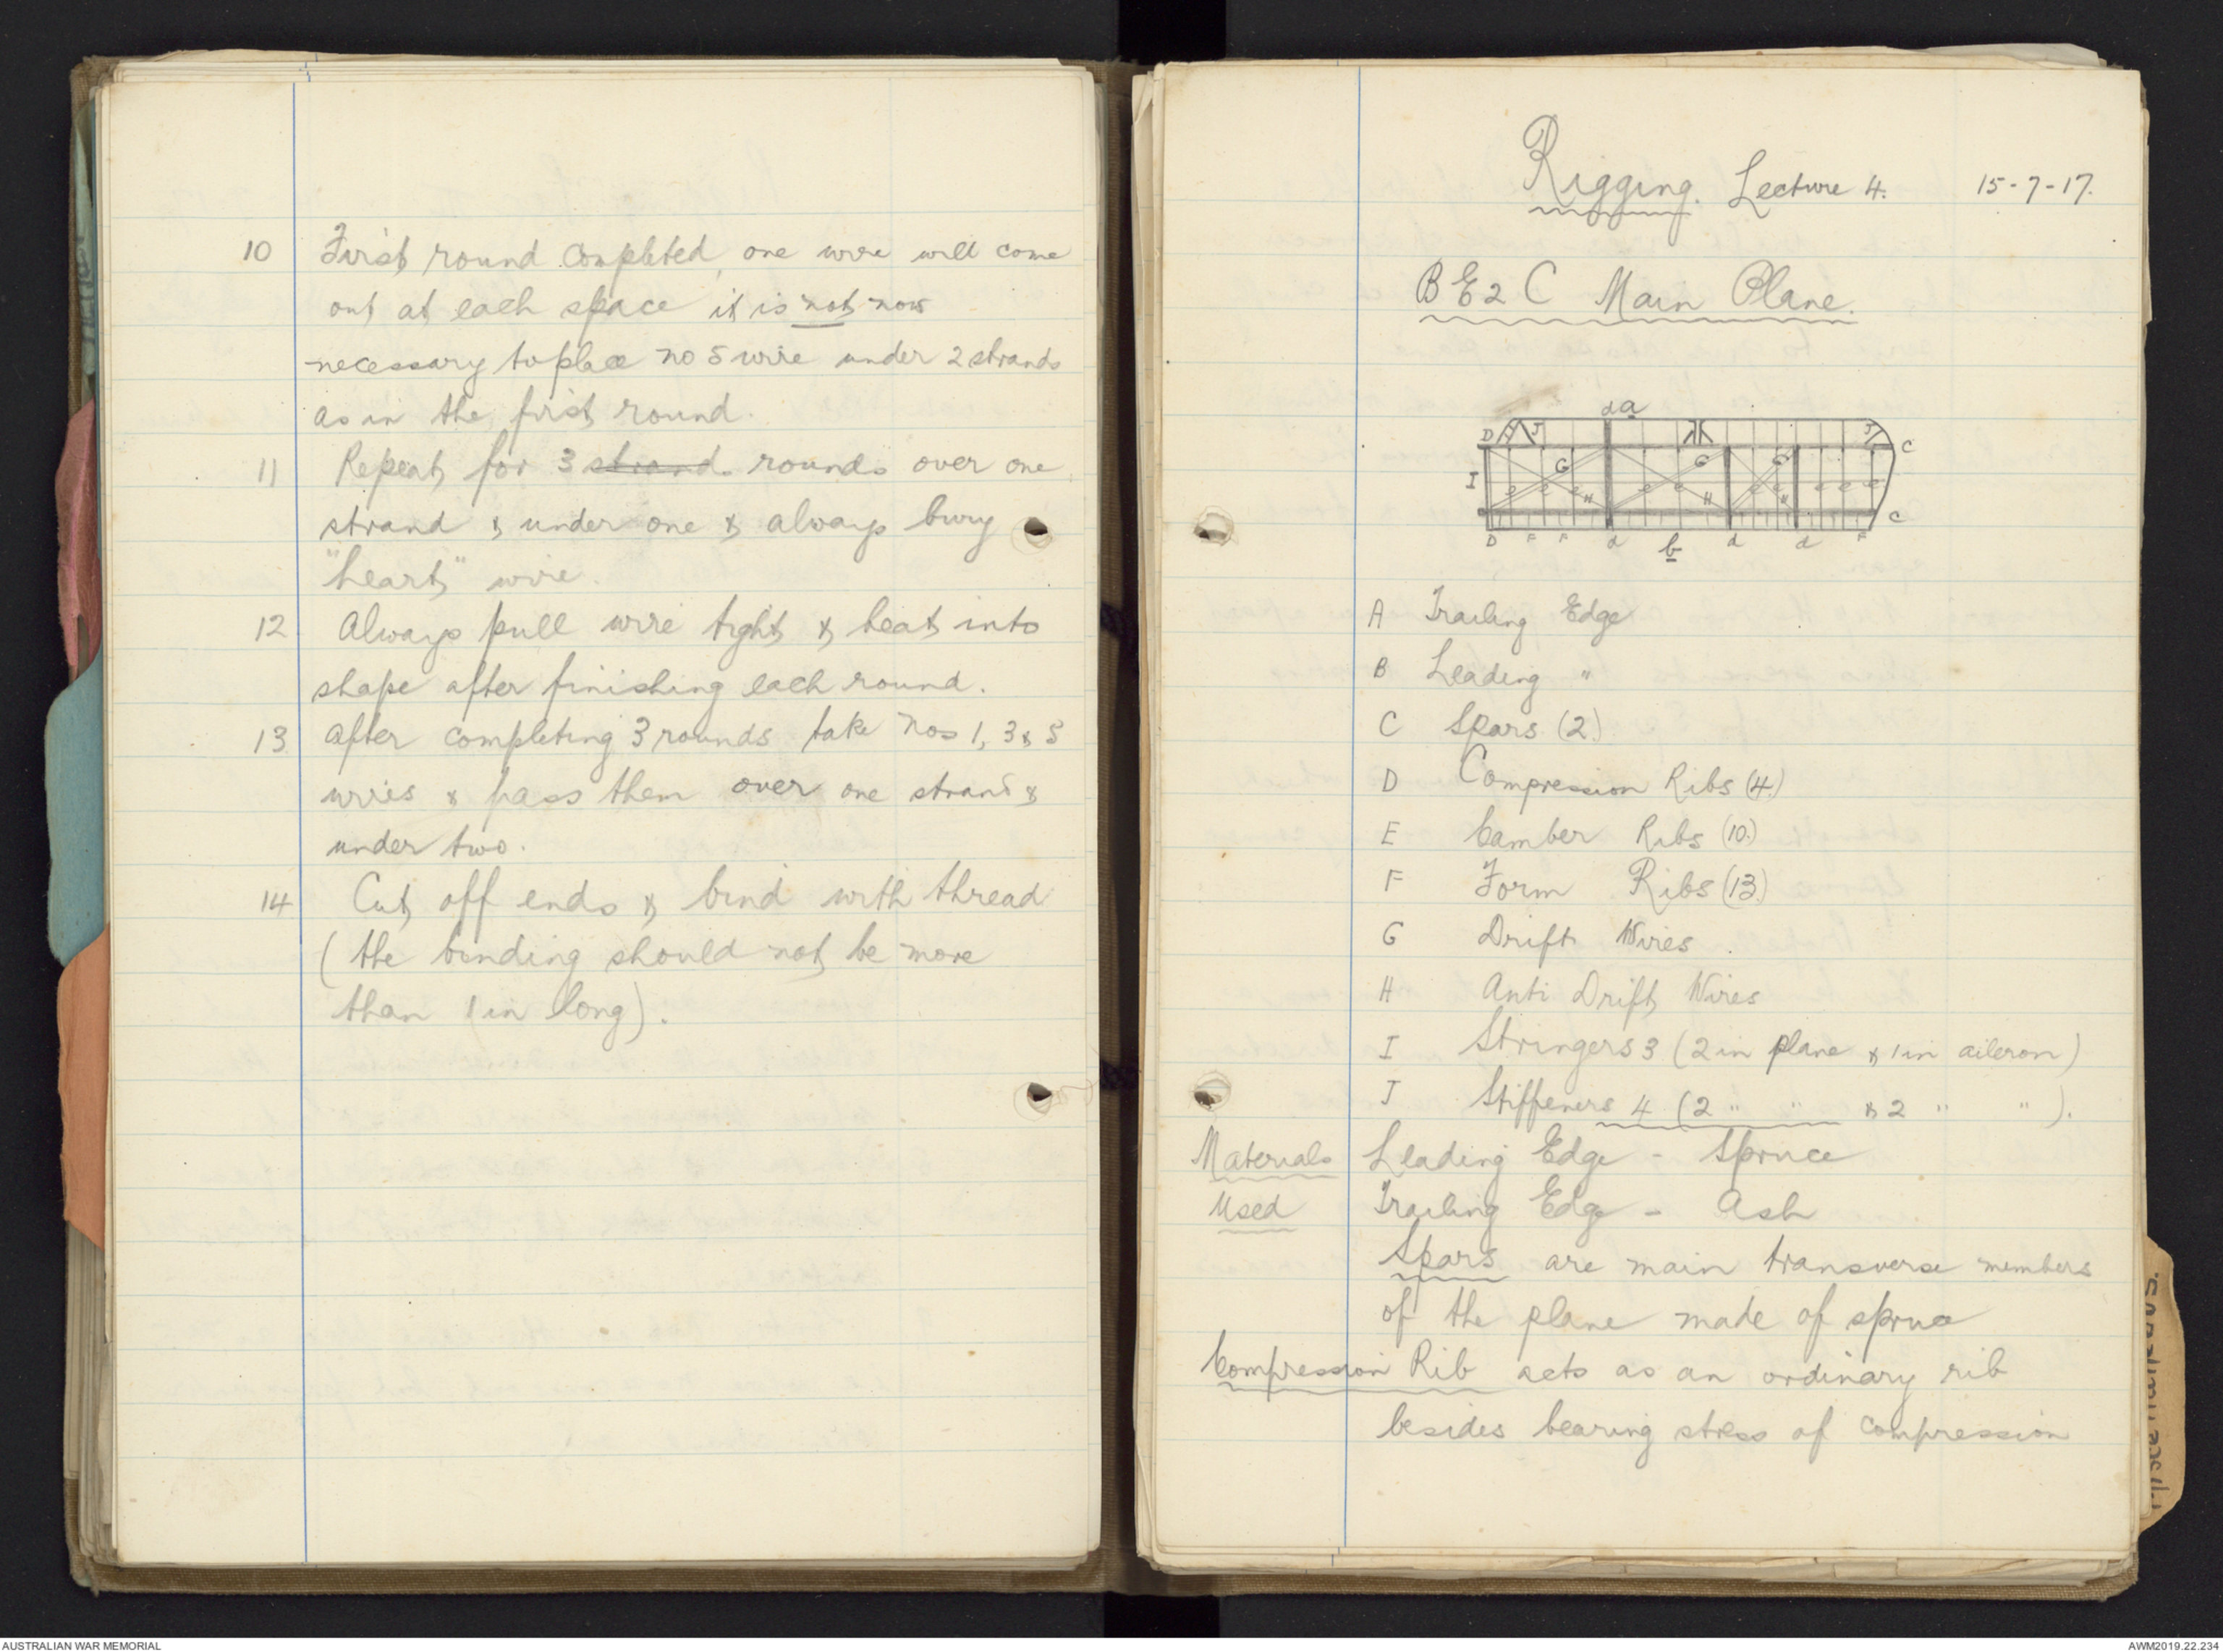 10 First round completed, one wire will come
out at each space it is not now
necessary to place no 5 wire under 2 strands
as in the first round.
11 Repeat for 3 strands rounds over one
strand & under one & always bury
"heart" wire.
12 Always pull wire tight & beat into
shape after finishing each round.
13 After completing 3 rounds take nos 1, 3 & 5
wires & pass them over one strand &
under two.
14 Cut off ends & bind with thread
(the binding should not be more
than 1 in long).
Rigging. Lecture 4. 15-7-17.
BE2C Main Plane.
d a
D J J C
G G G
I e e e H e e H e e H e e e
C
D F F d b d d F
A Trailing Edge
B Leading "
C Spars (2)
D Compression Ribs (4)
E Camber Ribs (10.)
F Form Ribs (13)
G Drift Wires
H Anti Drift Wires
I Stringers 3 (2 in plane & 1 in aileron)
J Stiffeners 4 (2 " " & 2 " " ).
Materials Leading Edge - Spruce
Used Trailing Edge - Ash
Spars are main transverse members
of the plane made of spruce
Compression Rib acts as an ordinary rib
besides bearing stress of compression
AUSTRALIAN WAR MEMORIAL
AWM2019.22.234